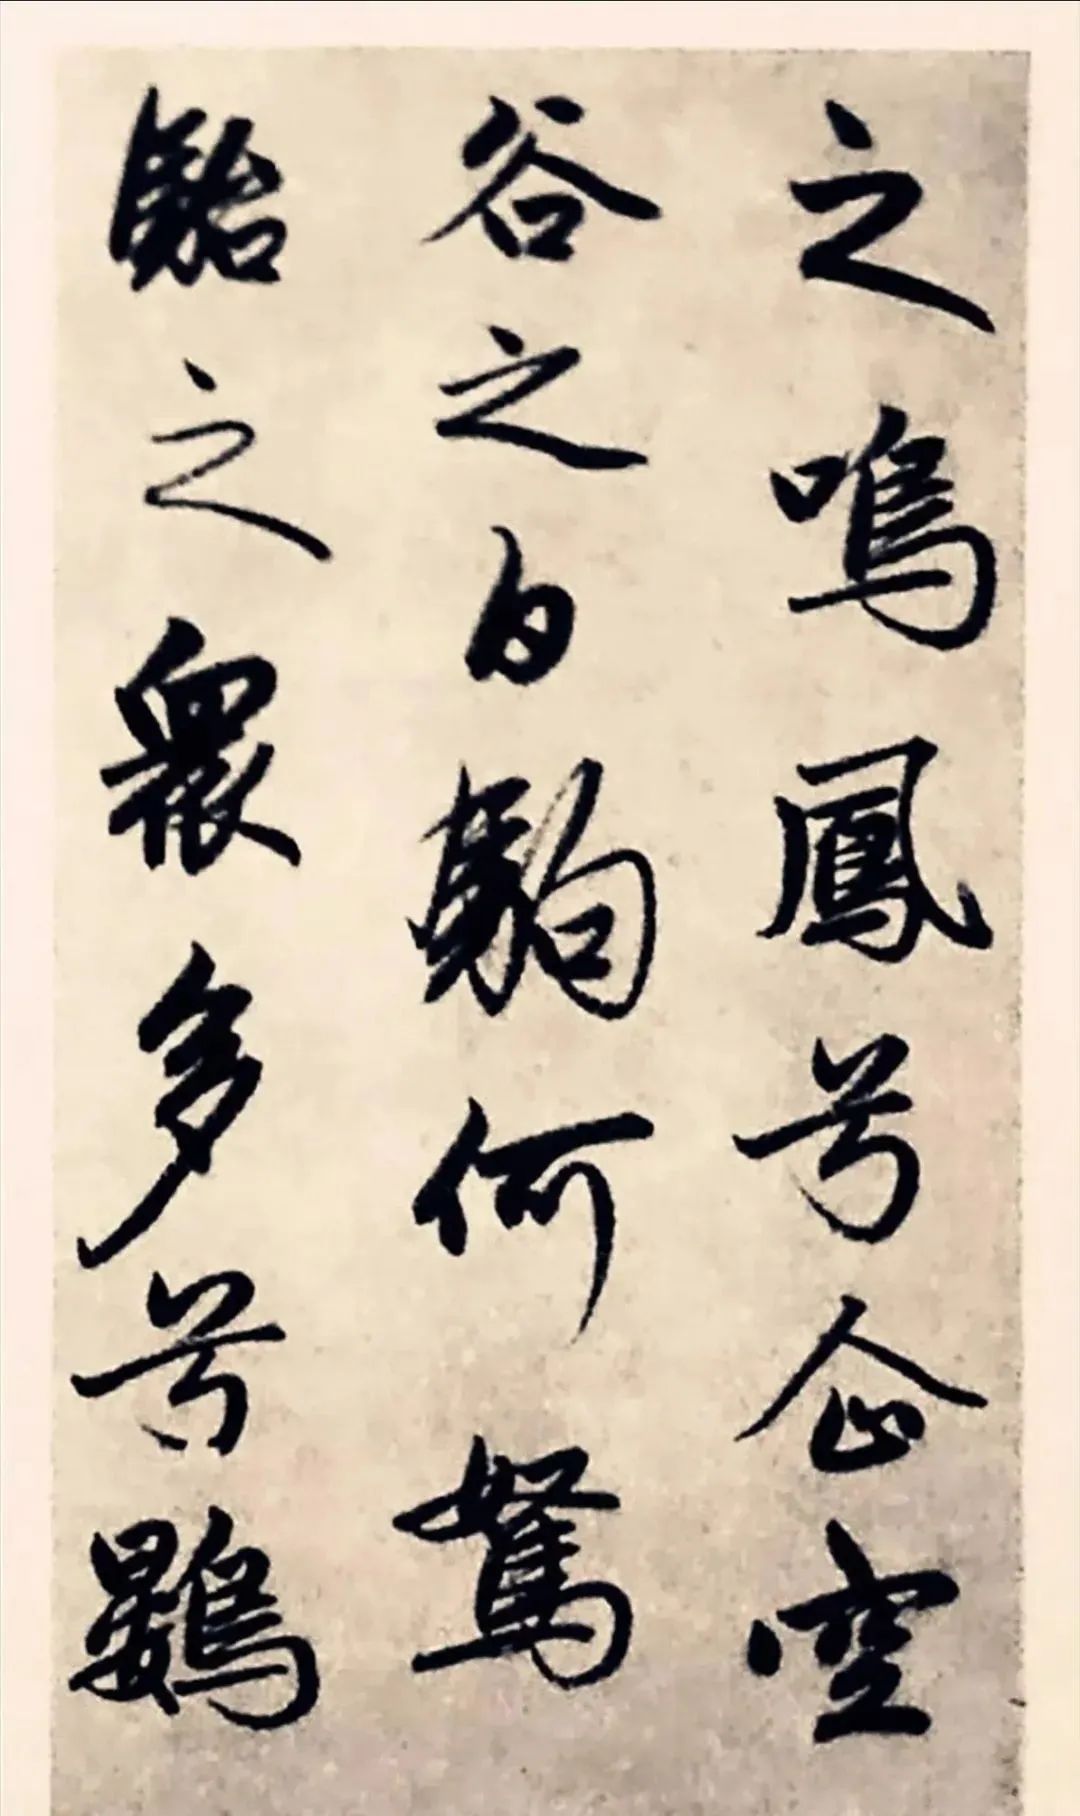 之鳴鳳兮企空
谷之白駒何駑
駘之衆多兮鷃